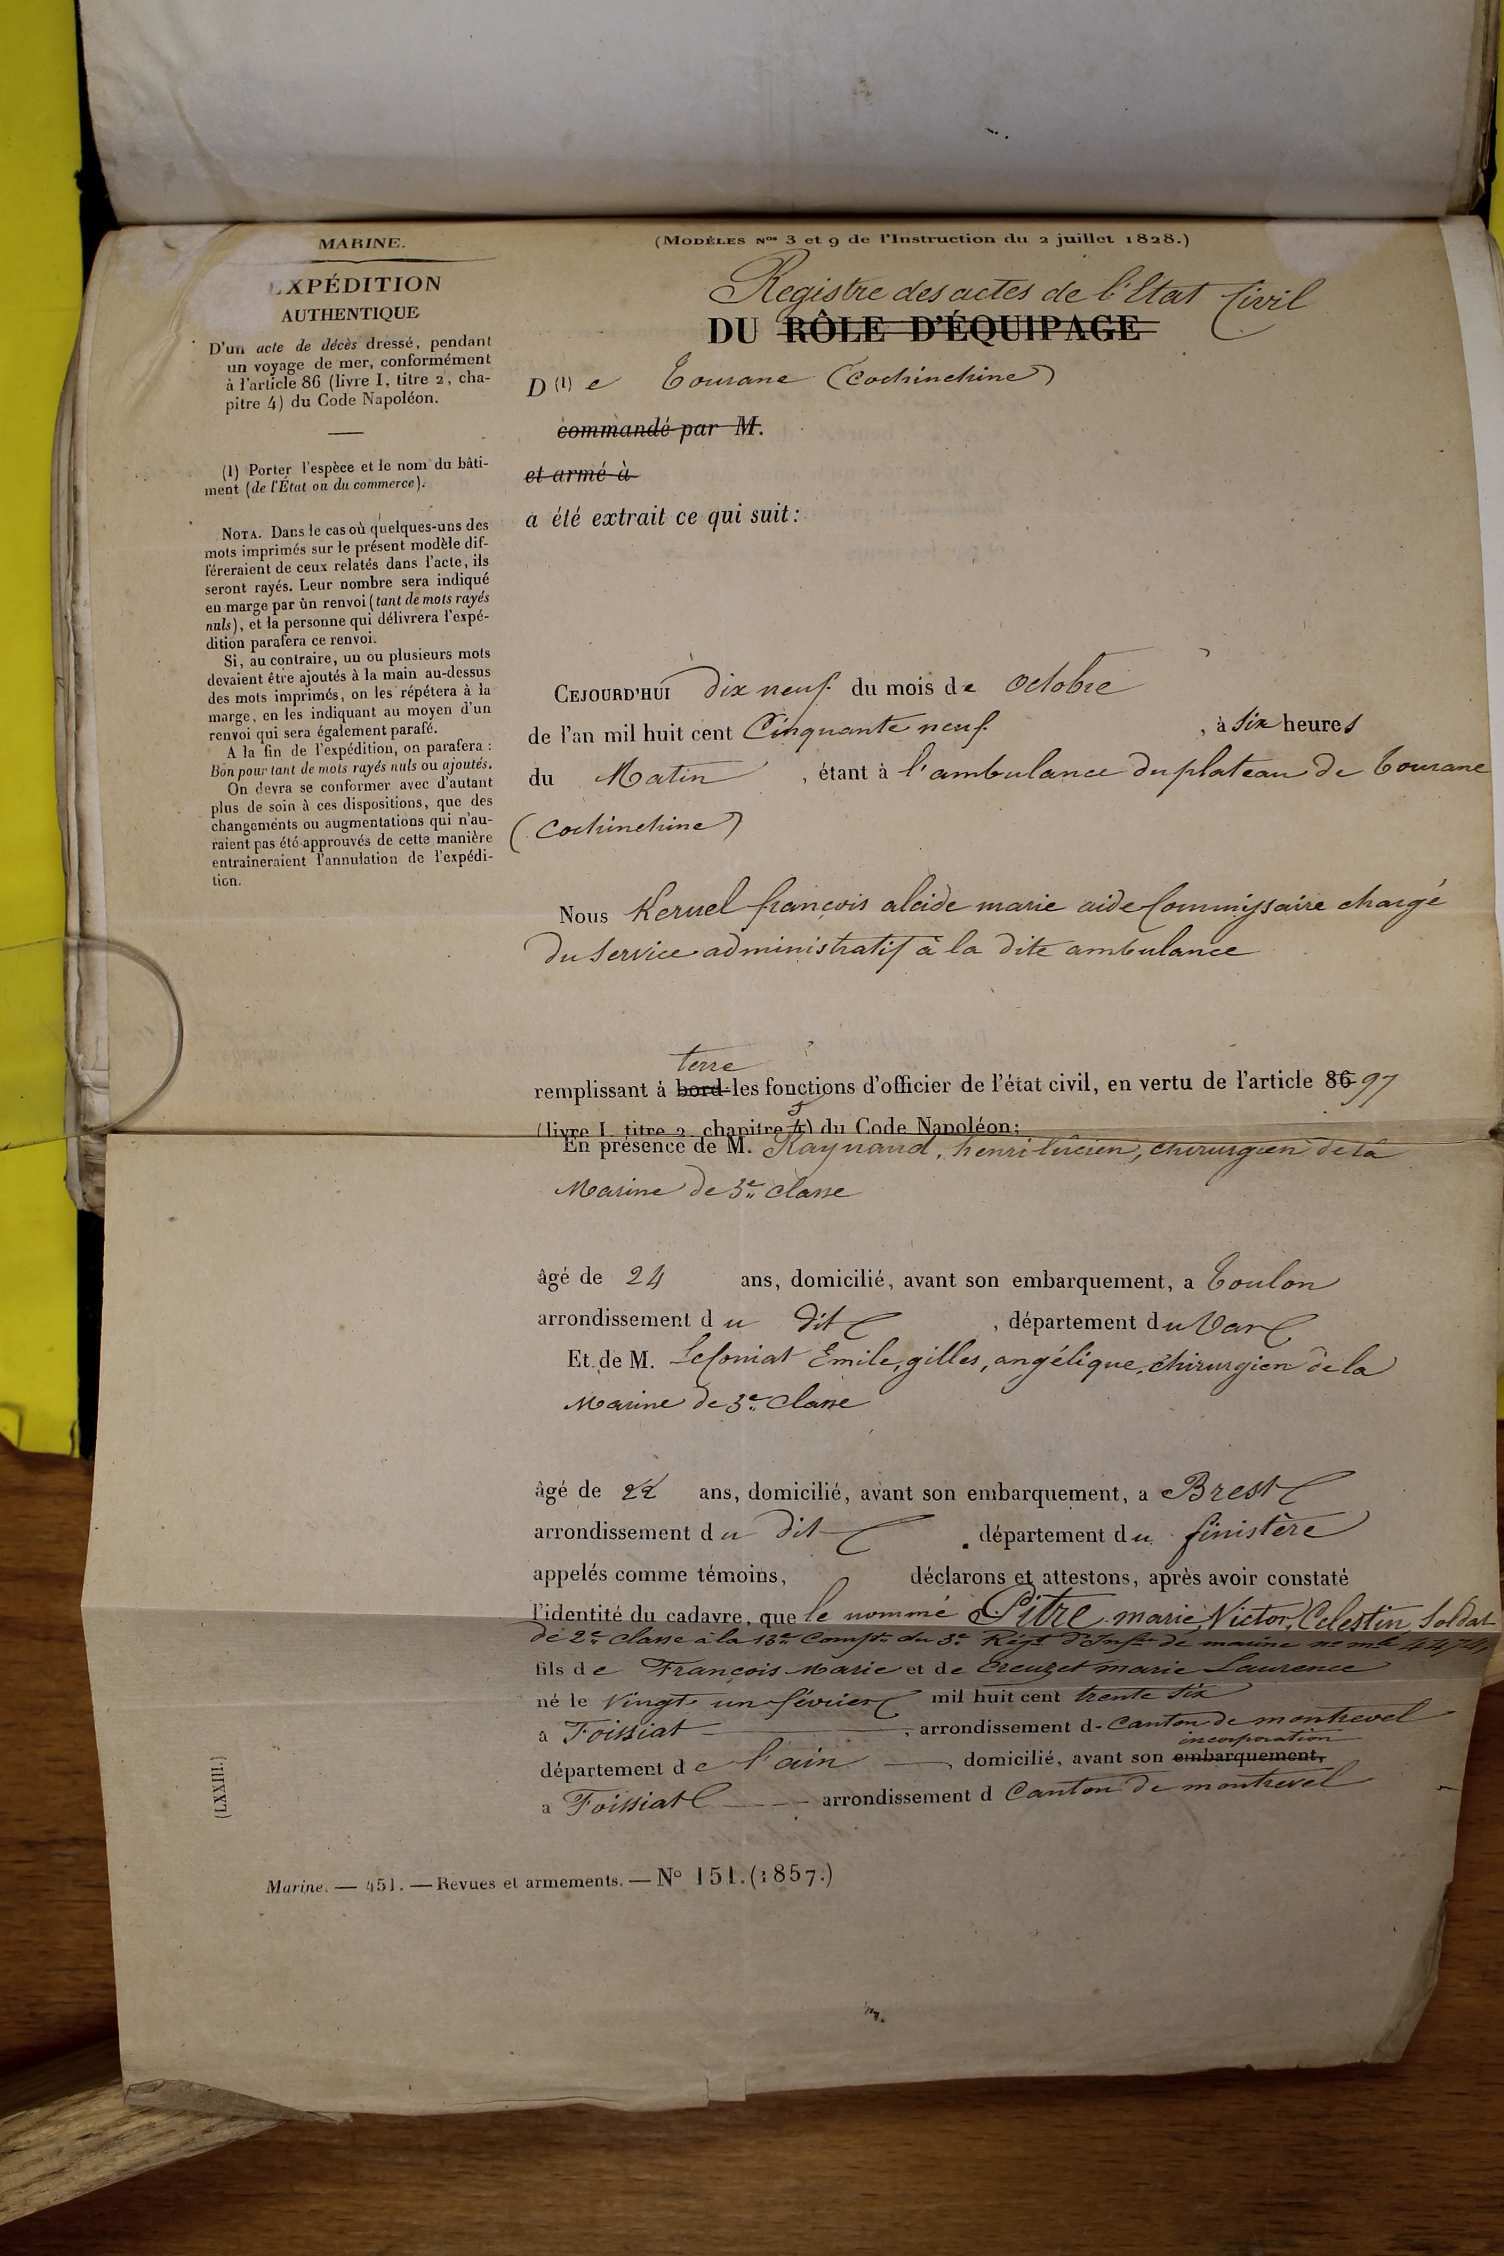 MARINE.
EXPÉDITION
AUTHENTIQUE
D'un acte de décès dressé, pendant
un voyage de mer, conformément
à l'article 86 (livre I, titre 2, cha-
pitre 4) du Code Napoléon.
(1) Porter l'espèce et le nom du bâti-
ment (de l'État ou du commerce).
NOTA. Dans le cas où quelques-uns des
mots imprimés sur le présent modèle dif-
féreraient de ceux relatés dans l'acte, ils
seront rayés. Leur nombre sera indiqué
en marge par un renvoi (tant de mots rayés
nuls), et la personne qui délivrera l'expé-
dition parafera ce renvoi.
Si, au contraire, un ou plusieurs mots
devaient être ajoutés à la main au-dessus
des mots imprimés, on les répétera à la
marge, en les indiquant au moyen d'un
renvoi qui sera également parafé.
A la fin de l'expédition, on parafera :
Bon pour tant de mots rayés nuls ou ajoutés.
On devra se conformer avec d'autant
plus de soin à ces dispositions, que des
changements ou augmentations qui n'au-
raient pas été approuvés de cette manière
entraîneraient l'annulation de l'expédi-
tion.
(MODÈLES Nos 3 et 9 de l'Instruction du 2 juillet 1828.)
Registre des actes de l'Etat Civil
DU RÔLE D'ÉQUIPAGE
D (1) e Tourane (Cochinchine)
commandé par M.
et armé à
a été extrait ce qui suit:
CEJOURD'HUI dix neuf du mois de Octobre
de l'an mil huit cent Cinquante neuf , à six heures
du Matin , étant à l'ambulance du plateau de Tourane
(Cochinchine)
Nous Keruel françois alcide marie aide Commissaire chargé
du Service administratif à la dite ambulance
terre
remplissant à bord les fonctions d'officier de l'état civil, en vertu de l'article 86 97
5
(livre I, titre 2, chapitre 4) du Code Napoléon;
En présence de M. Raynaud, henri lucien, chirurgien de la
Marine de 3e classe
âgé de 24 ans, domicilié, avant son embarquement, a Toulon
arrondissement du dit , département du Var
Et de M. LeConiat Emile, gilles, angélique, chirurgien de la
Marine de 3e classe
âgé de 22 ans, domicilié, avant son embarquement, a Brest
arrondissement du dit département du finistère
appelés comme témoins, déclarons et attestons, après avoir constaté
l'identité du cadavre, que le nommé Pitre marie, Victor, Celestin, Soldat
de 2e classe à la 13e Compie du 3e Régt d'Infie de marine no mle 4474
fils de François Marie et de Creuzet marie Laurence
né le Vingt un février mil huit cent trente six
à Foissiat , arrondissement d- Canton de montrevel
incorporation
département de l'ain , domicilié, avant son embarquement,
a Foissiat arrondissement d Canton de montrevel
(LXXIII.)
Marine. — 451. — Revues et armements. — No 151. (1857.)